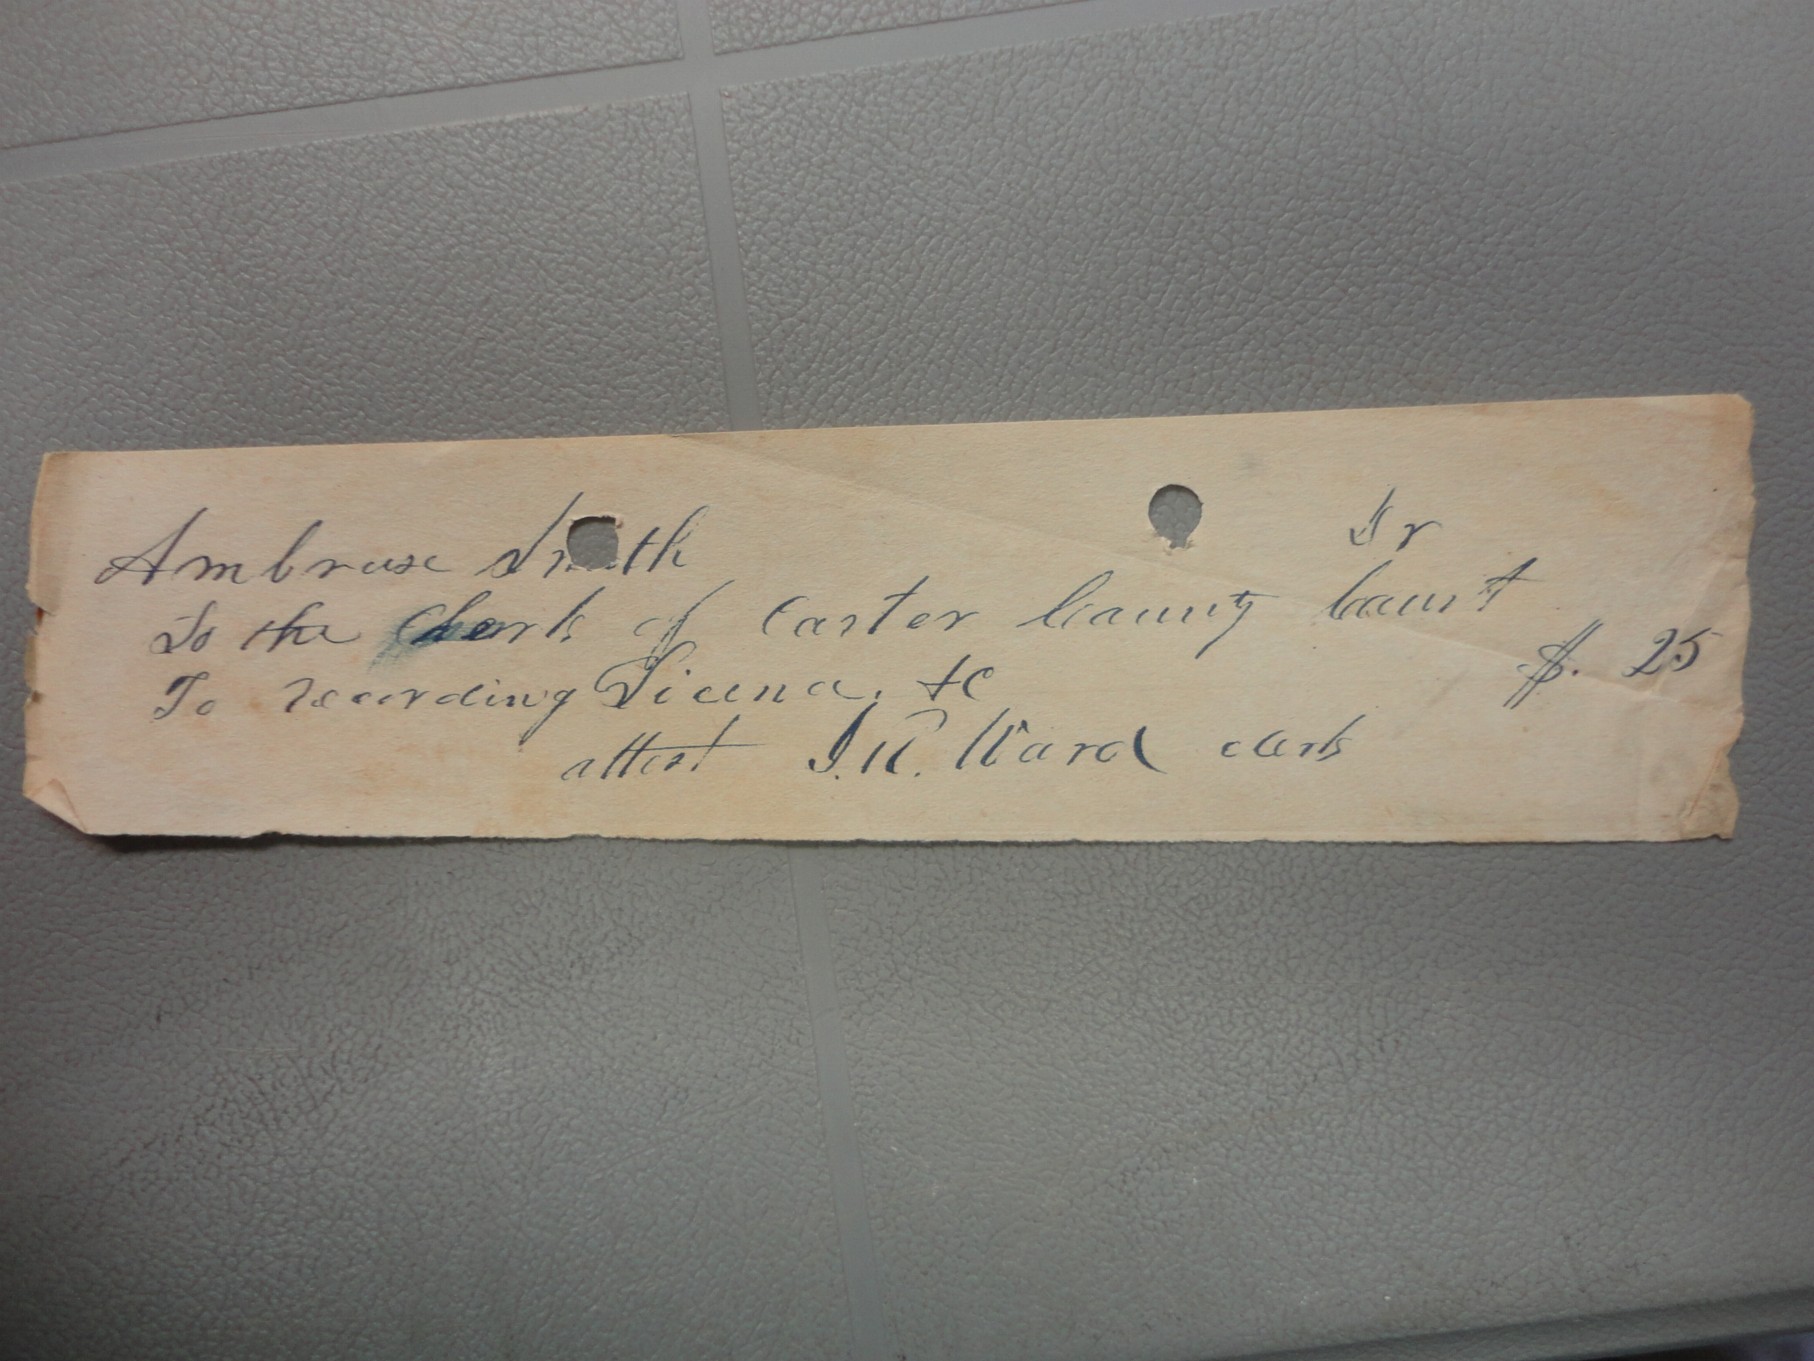 Ambrose Smith Dr
To the Clerk of Carter County Court
To recording License, &c $. 25
attest J.R. Ward clerk